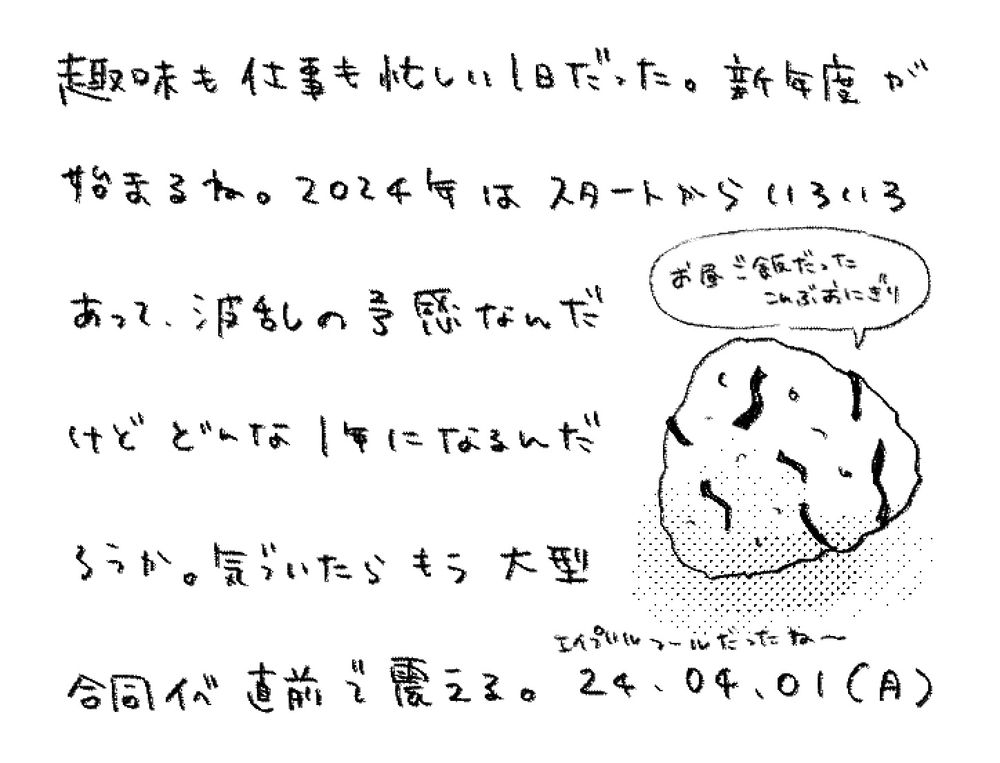 趣味も仕事も忙しい1日だった。新年度が
始まるね。2024年はスタートからいろいろ
お昼ご飯だった
こんぶおにぎり
あって、波乱の予感なんだ
けどどんな1年になるんだ
ろうか。気づいたらもう大型
エイプリルフールだったね〜
合同イベ直前で震える。24.04.01(月)